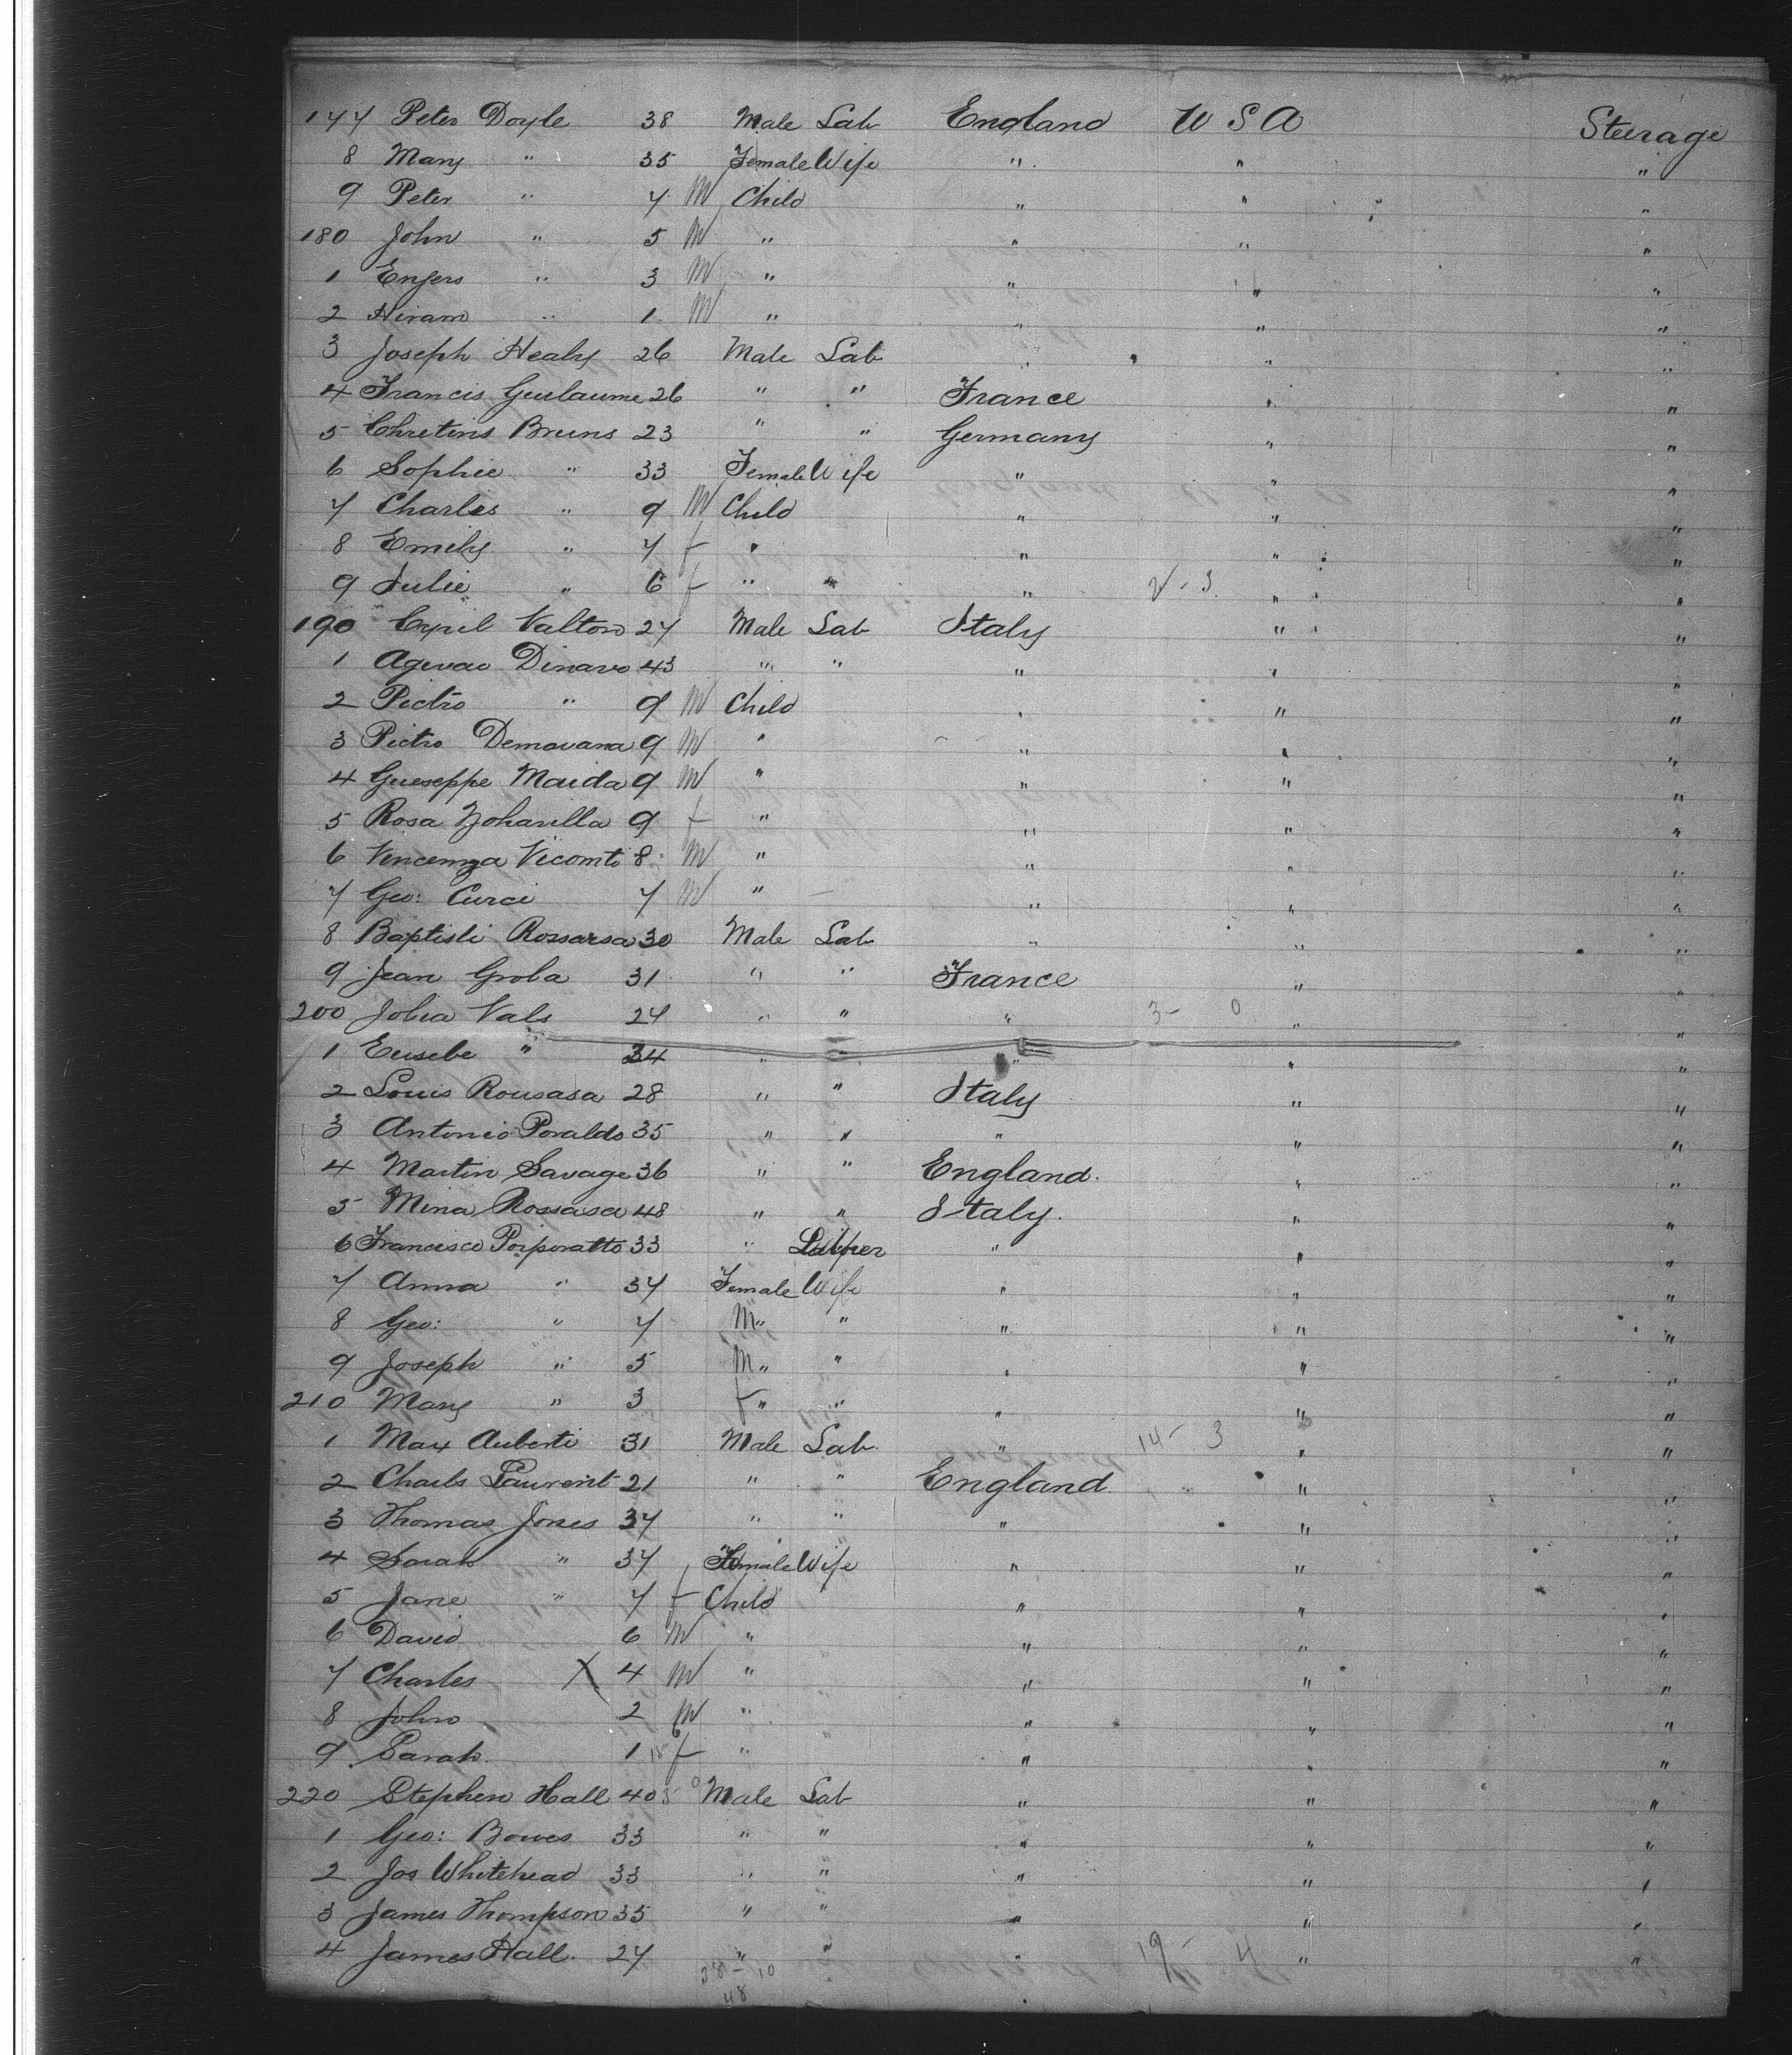 177 Peter Doyle 38 Male Lab England U S A Steerage
8 Mary " 35 Female Wife " " "
9 Peter " 7 M Child " " "
180 John " 5 M " " " "
1 " 3 M " " " "
2 Hiram " 1 M " " " "
3 Joseph Healy 26 Male Lab " " "
4 Francis Guilaume 26 " " France " "
5 Chretins Bruns 23 " " Germany " "
6 Sophie " 33 Female Wife " " "
7 Charles " 9 M Child " " "
8 Emily " 7 f " " " "
9 Julie " 6 f " " " 2 - 3 " "
190 Cyril Valton 27 Male Lab Italy " "
1 Dinavo 43 " " " " "
2 Pietro " 9 M Child " " "
3 Pietro Demavana 9 M " " " "
4 Gueseppe Maida 9 M " " " "
5 Rosa 9 f " " " "
6 Vincenza Vicomti 8 M " " " "
7 Geo: Curci 7 M " " " "
8 Baptisti Rossarsa 30 Male Lab " " "
9 Jean Groba 31 " " France " "
200 Vals 24 " " " 3 - 0 " "
1 Eusebe " 34 " " " "
2 Louis Rousasa 28 " " Italy " "
3 Antonio Poraldo 35 " " " " "
4 Martin Savage 36 " " England. " "
5 Mina Rossasa 48 " " Italy. " "
6 Francisco Porporatto 33 " " " "
7 Anna " 37 Female Wife " " "
8 Geo: " 7 M " " " " "
9 Joseph " 5 M " " " " "
210 Mary " 3 f " " " " "
1 Max Auberti 31 Male Lab. " 14 - 3 " "
2 Charls Laurent 21 " " England " "
3 Thomas Jones 37 " " " " "
4 Sarah " 37 Female Wife " " "
5 Jane " 7 f Child " " "
6 David 6 M " " " "
7 Charles X 4 M " " " "
8 John 2 M " " " "
9 Sarah. 1 f " " " "
220 Stephen Hall 40 Male Lab " " "
1 Geo: Bowes 33 " " " " "
2 Jos Whitehead 33 " " " " "
3 James Thompson 35 " " " " "
4 James Hall. 27 " " " 19 - 4 " "
38 - 10
48